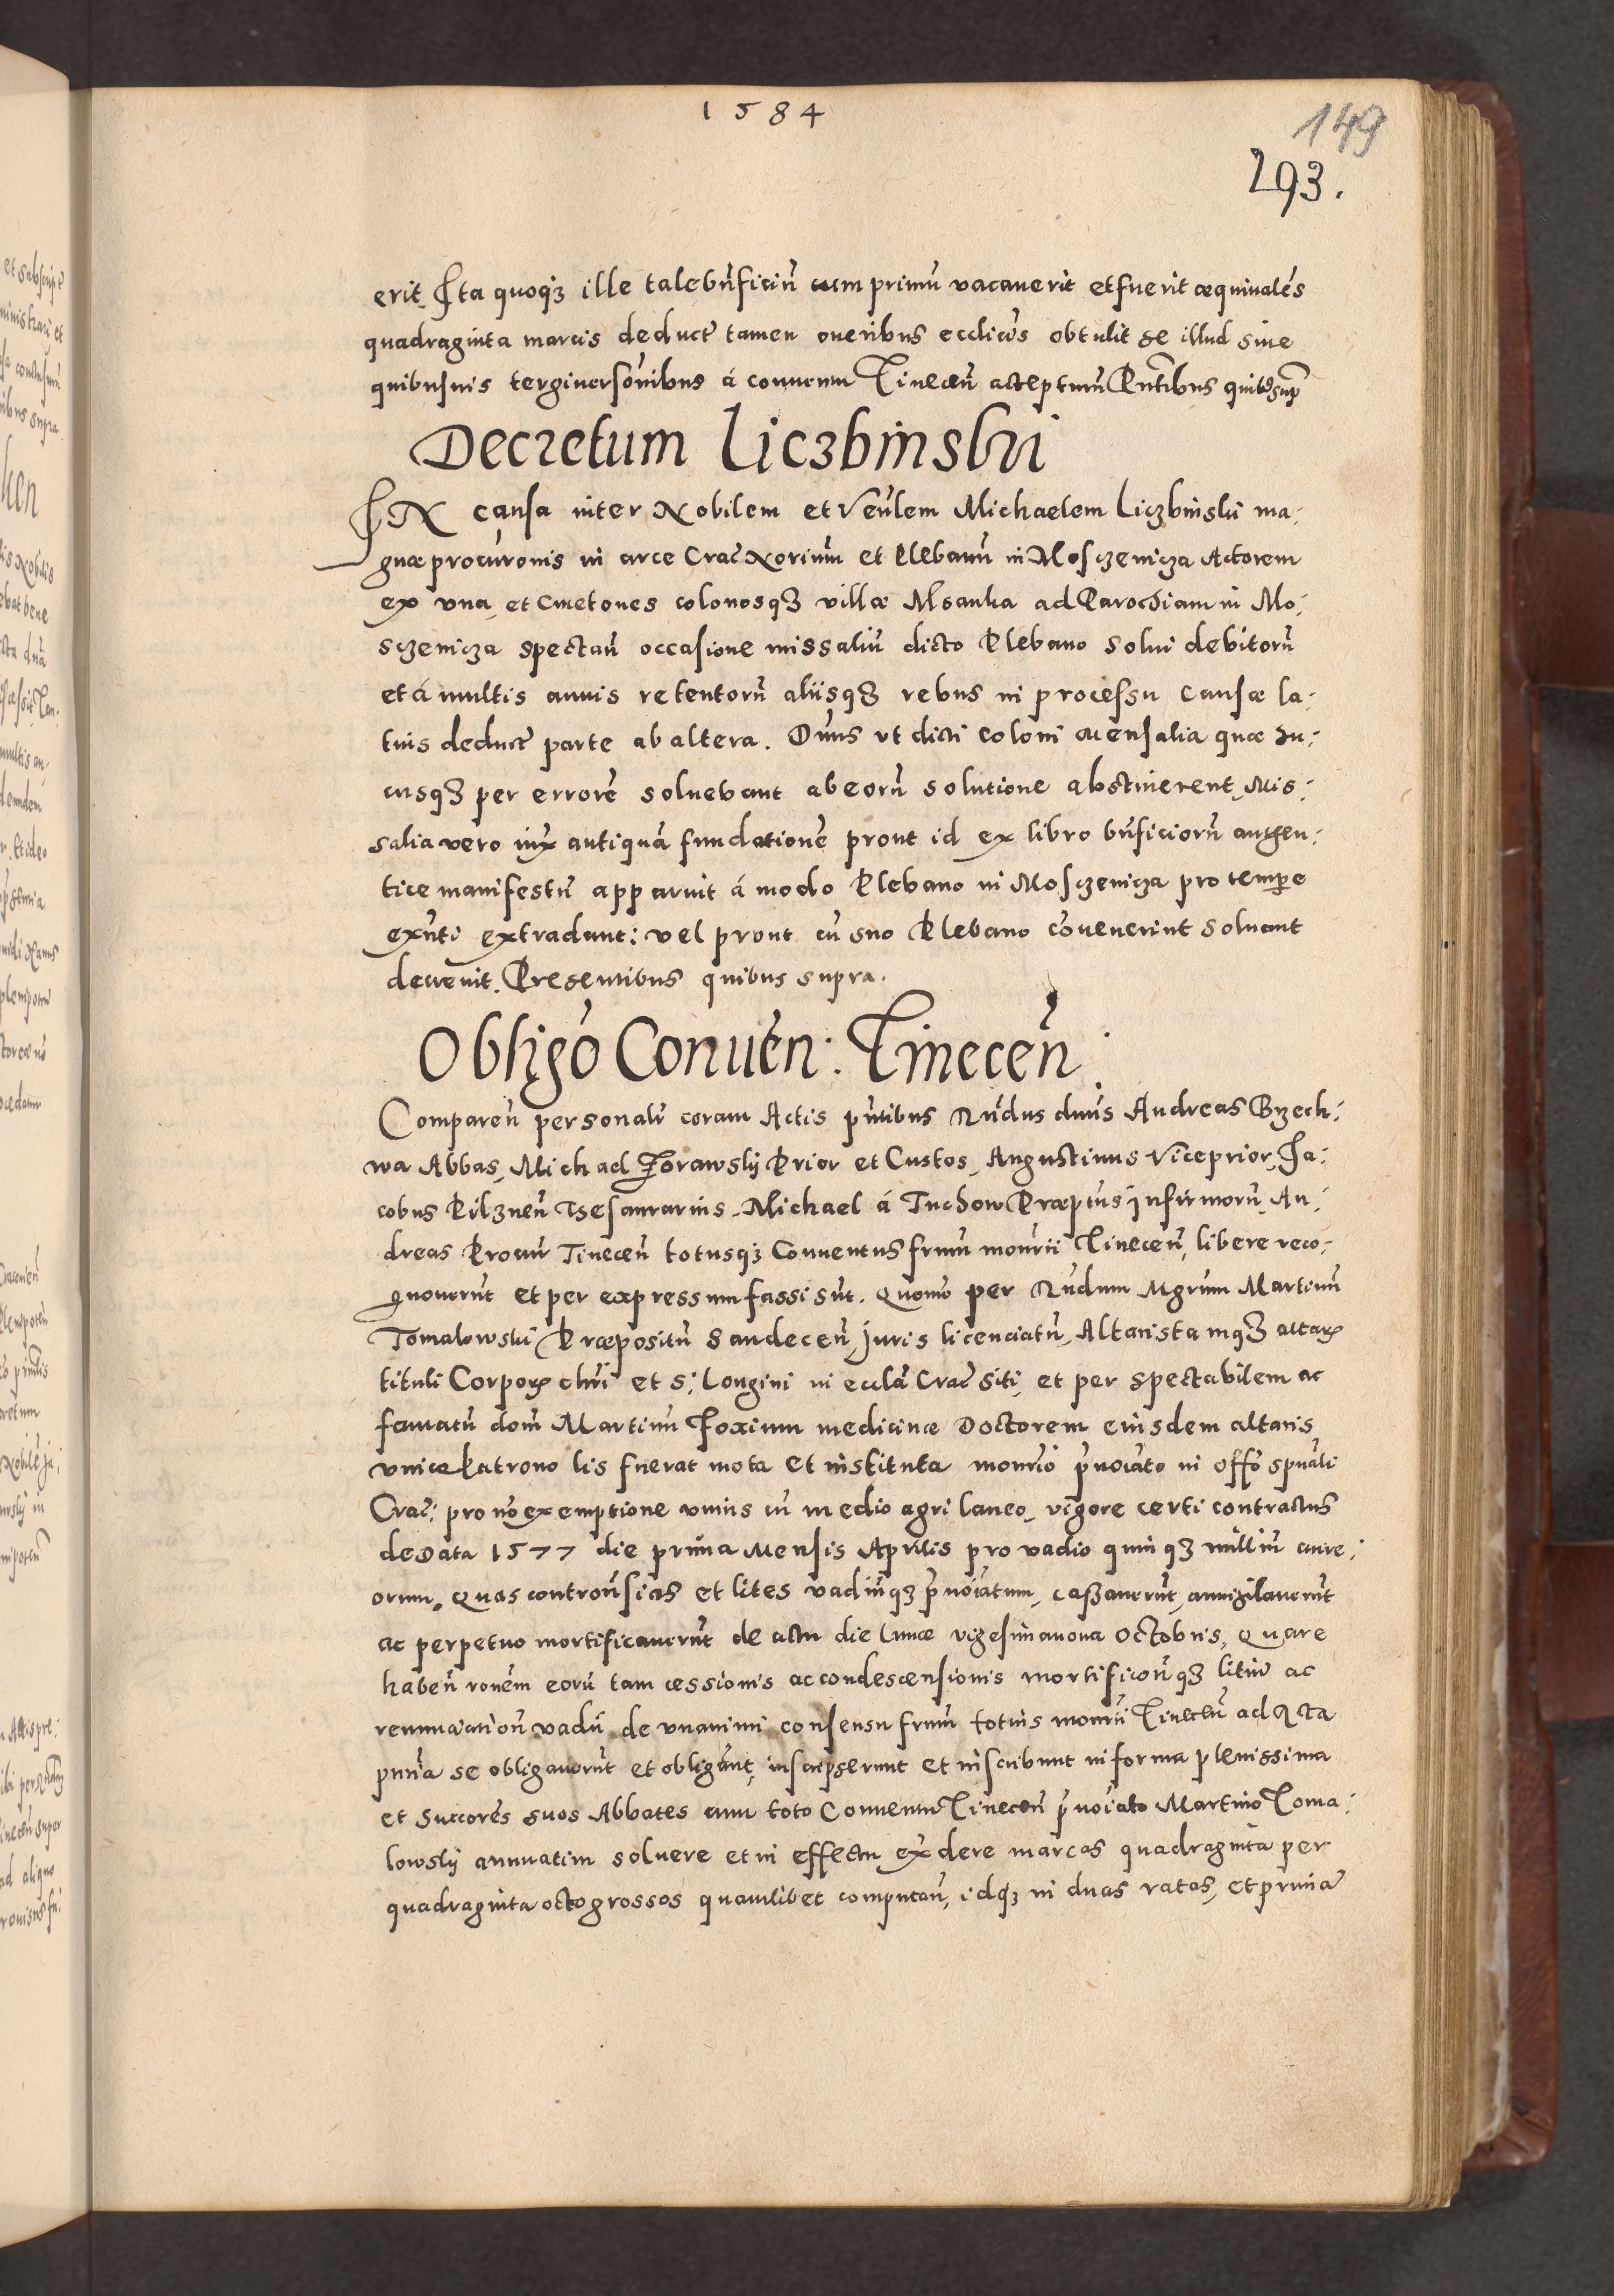 1584
149
293.
erit. Ita quoqȝ ille tale bn̄ficiū cum primū vacauerit et fuerit æquiualēs
quadraginta marcis deduct̄ tamen oneribus eccl̄icis obtulit se illud sine
quibusuis tergiuersōnibus á conuentu Tinecen̄ accepturū Pn̄tibus quib9 sup̄
Decretum Liczbinski
IN causa inter Nobilem et Ven̄lem Michaelem Liczbinski ma:
gnæ procuronis in arce Crac̄ Norium et Plebanū in Mosczenicza Actorem
ex vna, et Cmetones colonosqȝ villæ Msanka ad Parochiam in Mo:
sczenicza spectan̄ occasione missaliū dicto Plebano solui debitorū
et á multis annis retentorū aliisqȝ rebus in processu causæ la:
tius deduct̄ parte ab altera. Dn̄us vt dicti coloni mensalia quæ hu:
cusqȝ per errorē soluebant ab eorū solutione abstinerent, Mis:
salia vero iux̄ antiquā fundationē prout id ex libro bn̄ficiorū authen:
tice manifestū apparuit á modo Plebano in Mosczenicza pro temp̄e
exn̄ti extradant: vel prout cū suo Plebano cōuenerint soluant
decreuit. Presentibus quibus supra.
Obligō Conuen̄: Tinecen̄
Comparen̄ personalr̄ coram Actis pn̄tibus Rn̄dus dn̄us Andreas Brzech:
wa Abbas, Michael Zorawsky Prior et Custos, Augustinus Viceprior, Ja:
cobus Pilznen̄ Thesaurarius. Michael á Tuchow Præptus infirmorū, An:
dreas Procur̄ Tinecen̄ totusqȝ Conuentus frum monrii Tinecen̄, libere reco:
gnouerūt et per expressum fassi sūt. Quomō per Rn̄dum Mgrum Martinū
Tomalowski Præpositū Sandecen̄, Juris licenciatū, Altaristamqȝ altar̄
tituli Corpor̄ chr̄i et S: Longini in eccl̄a Crac̄ siti, et per spectabilem ac
famatū dom̄ Martinū Foxium medicinæ Doctorem eiusdem altaris
vnico Patrono lis fuerat mota et instituta monrio p̄noiato in offō sp̄uali
Crac̄: pro nō exemptione vnius cū medio agri laneo, vigore certi contractus
de Data 1577 die prima Mensis Aprilis pro vadio quinqȝ milliū aure:
orum. Quas controu̇sias et lites vadiūqȝ p̄noiatum, cassauerūt, annihilauerūt
ac perpetuo mortificauerūt de actu die lunæ vigesimanona Octobris, Quare
haben̄ ronem eorū tam cessionis ac condescensionis mortificon̄qȝ litiū ac
renunciation̄ vadii de vnanimi consensu frum totius monrii Tinecen̄ ad Acta
pn̄tia se obligauerūt et obligant, inscripserunt et inscribunt in forma plenissima
et Succores suos Abbates cum toto Conuentu Tinecen̄ p̄noiato Martino Toma:
lowsky annuatim soluere et in effectu exdere marcas quadraginta per
quadraginta octo grossos quamlibet computan̄, idqȝ in duas ratas, et primā